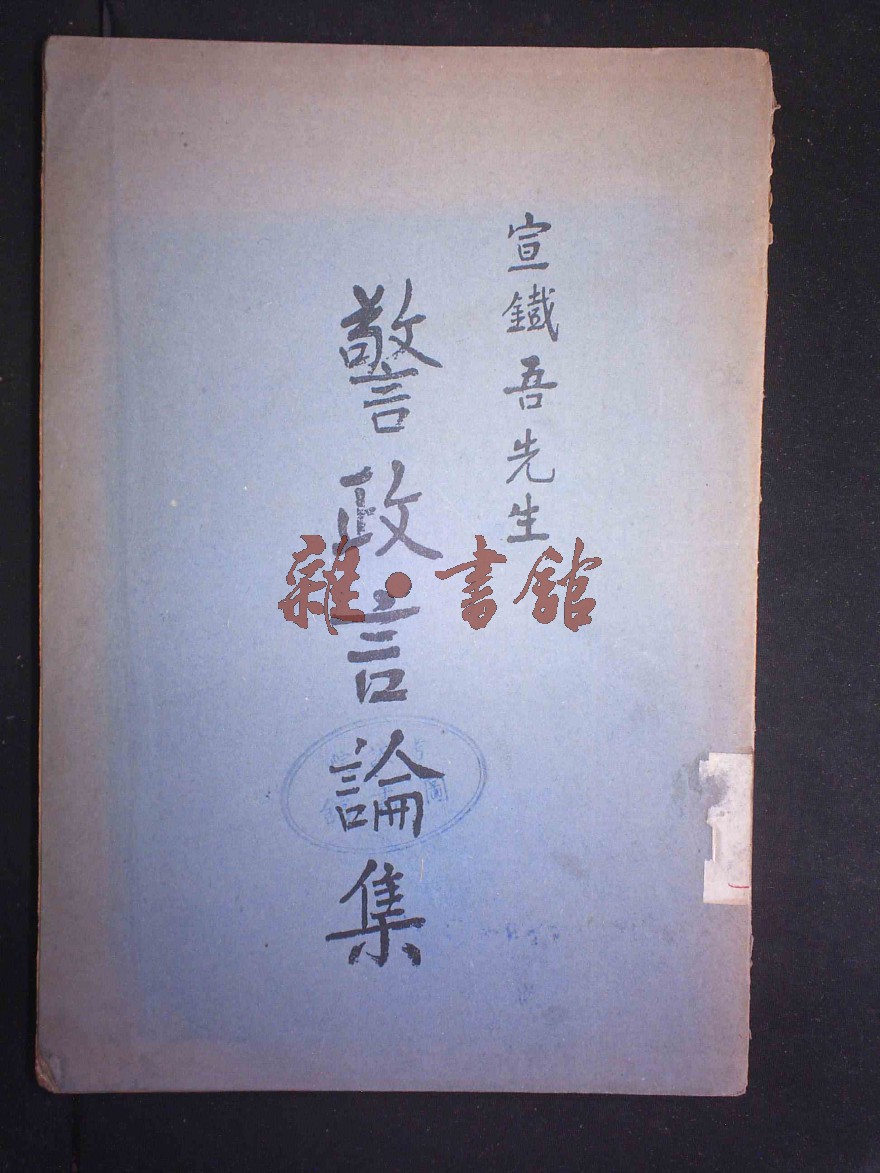 宣鐵吾先生
警政言論集
雜·書館